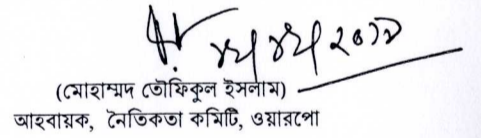 ২০১৯
(মোহাম্মদ তৌফিকুল ইসলাম)
আহবায়ক, নৈতিকতা কমিটি, ওয়ারপো